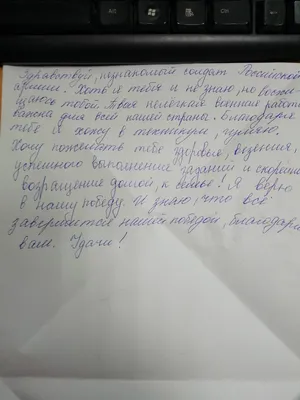 Здравствуй, незнакомый солдат Российской
армии! Хоть я тебя и не знаю, но восхи-
щаюсь тобой. Твоя нелёгкая военная работа
важна для всей нашей страны. Благодаря
тебе я хожу в техникум, гуляю.
Хочу пожелать тебе здоровья, везения,
успешного выполнения заданий и скорейш
возращение домой, к семье! Я верю
в нашу победу. И знаю, что всё
завершится нашей победой, благодаря
вам. Удачи!